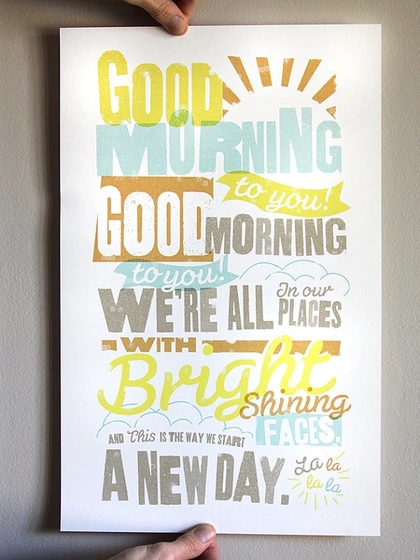 GOOD
MORNING
to you!
GOOD MORNING
to you!
WE'RE ALL In our PLACES
WITH
Bright
Shining
FACES.
AND this IS THE WAY WE START
A NEW DAY.
La la
la la